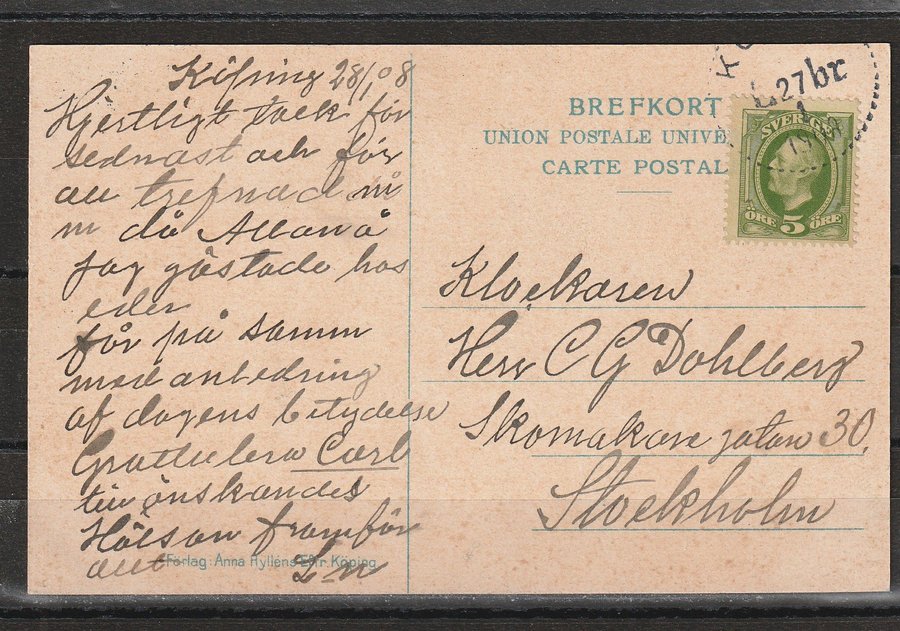 Köping 28/1 08
Hjertligt tack för
sednast och för
all trefnad ni
ni då Allan å
jag gästade hos
eder
får på samm
med anledning
af dagens betydelse
Grattulera Carl
till önskandes
Hälsan framför
allt
Förlag: Anna Hylléns Eftr. Köping
BREFKORT
UNION POSTALE UNIVE
CARTE POSTAL
27 br
SVERIGE
ÖRE 5 ÖRE
Klockaren
Herr C G Dahlberg
Skomakare gatan 30.
Stockholm